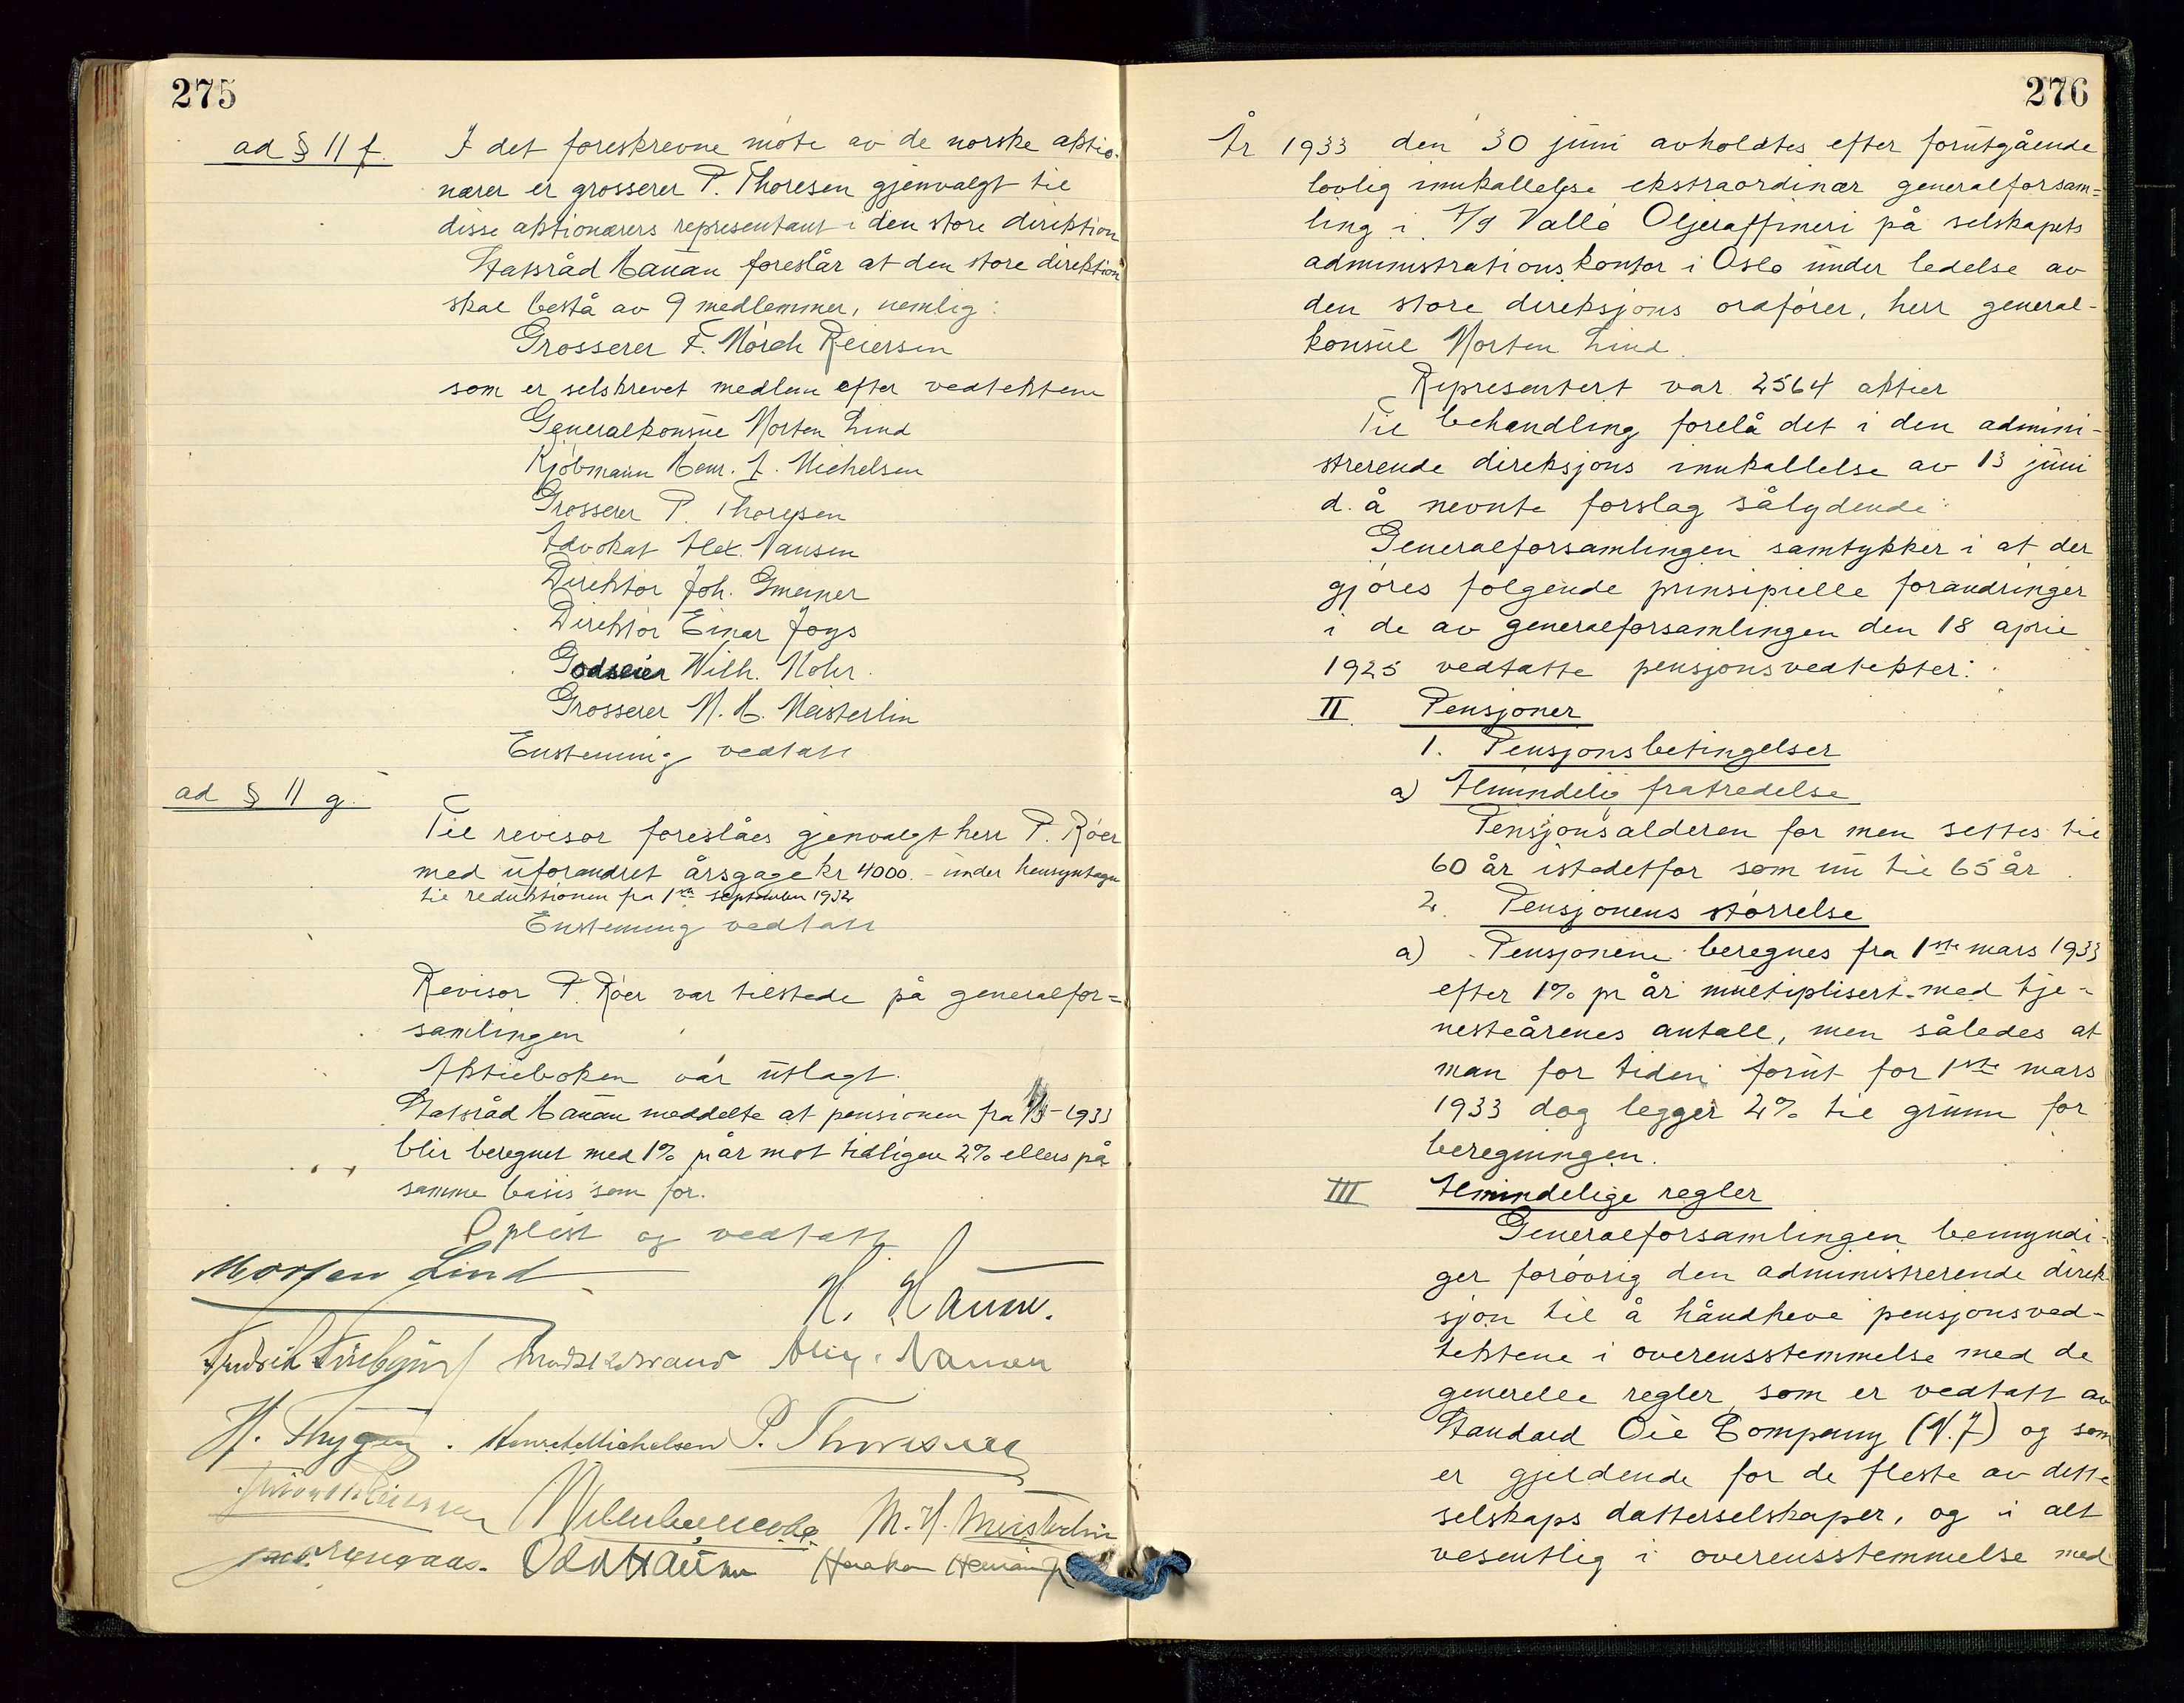 275
ad § 11 f. I det foreskrevne møte av de norske aktio-
nærer er grosserer P. Thoresen gjenvalgt til
disse aktionærers representant i den store direktion
Statsråd Hauan foreslår at den store direktion
skal bestå av 9 medlemmer, nemlig:
Grosserer F. Mørch Reiersen
som er selskrevet medlem efter vedtektene
Generalkonsul Morten Lind
Kjøbmann Henr. J. Michelsen
Grosserer P. Thoresen
Advokat Alex. Nansen
Direktør Joh. Gmeiner
Direktør Einar Joys
Godseier Wilh. Mohr.
Grosserer M. H. Meisterlin
Enstemmig vedtatt
ad § 11 g.
Til revisor foreslåes gjenvalgt herr P. Røer
med uforandret årsgage kr 4000.- under hensyntagen
til reduktionen fra 1ste september 1932
Enstemmig vedtatt
Revisor P. Røer var tilstede på generalfor=
samlingen
Aktieboken var utlagt.
Statsråd Hauan meddelte at pensionen fra 1933
blir beregnet med 1% pr år mot tidligere 2% ellers på
samme basis som før.
Oplest og vedtatt
Morten Lind
H. Hauan.
Alex. Nansen
H. Thygesen . Henr. J. Michelsen P. Thoresen
M. H. Meisterlin
Odd Hauan
276
År 1933 den 30 juni avholdtes efter forutgående
lovlig innkallelse ekstraordinær generalforsam=
ling i A/S Vallø Oljeraffineri på selskapets
administrationskontor i Oslo under ledelse av
den store direksjons ordfører, herr general-
konsul Morten Lind.
Representert var 2564 aktier
Til behandling forelå det i den admini-
strerende direksjons innkallelse av 13 juni
d. å nevnte forslag sålydende:
Generalforsamlingen samtykker i at der
gjøres følgende prinsipielle forandringer
i de av generalforsamlingen den 18 april
1925 vedtatte pensjonsvedtekter:
II Pensjoner
1. Pensjonsbetingelser
a) Almindelig fratredelse
Pensjonsalderen for men settes til
60 år istedetfor som nu til 65 år.
2. Pensjonens størrelse
a) Pensjonene beregnes fra 1ste mars 1933
efter 1% pr år multiplisert med tje-
nesteårenes antall, men således at
man for tiden forut for 1ste mars
1933 dog legger 2% til grunn for
beregningen.
III Almindelige regler
Generalforsamlingen bemyndi-
ger forøvrig den administrerende direk-
sjon til å håndheve pensjonsved-
tektene i overensstemmelse med de
generelle regler, som er vedtatt av
Standard Oil Company (N.J) og som
er gjeldende for de fleste av dette
selskaps datterselskaper, og i alt
vesentlig i overensstemmelse med